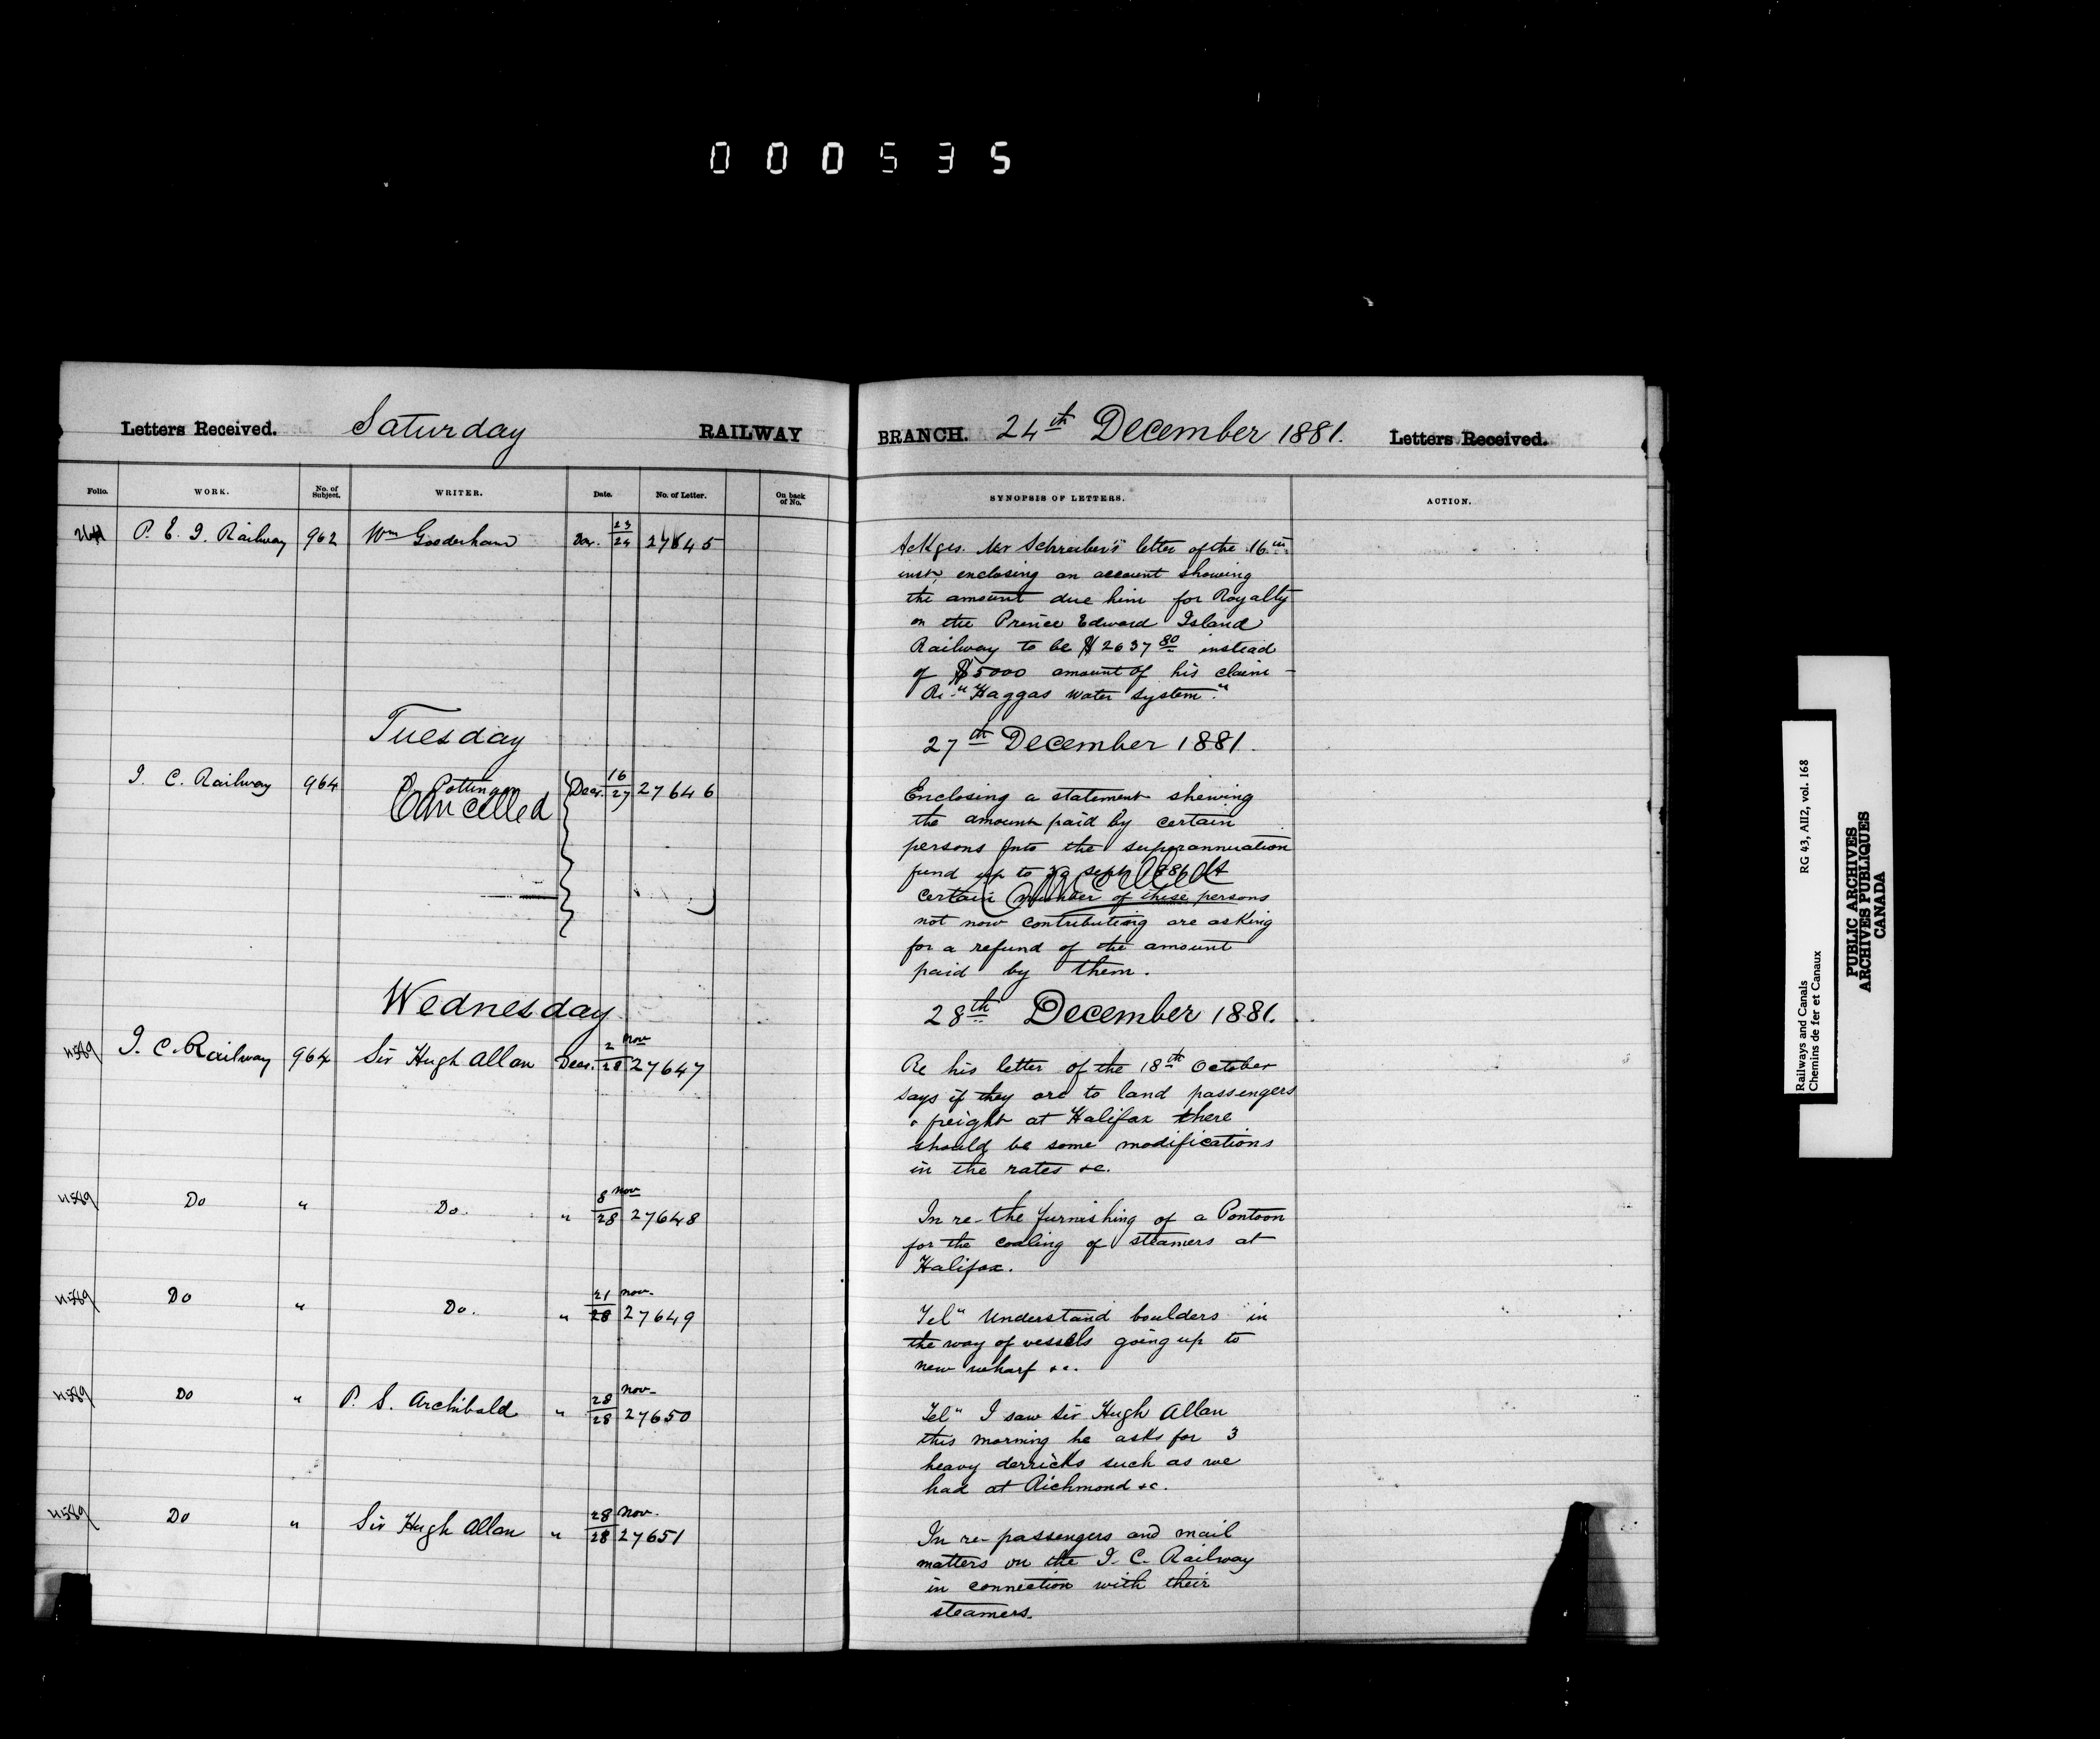 000535
Letters Received. Saturday RAILWAY BRANCH. 24th December 1881. Letters Received.
Folio. WORK. No. of Subject. WRITER. Date. No. of Letter. On back of No. SYNOPSIS OF LETTERS. ACTION.
P. E. I. Railway 962 Wm Gooderham 23/24 27645
Ackges. Mr Schreiber's letter of the 16th
inst, enclosing an account showing
the amount due him for Royalty
on the Prince Edward Island
Railway to be $2637 80 instead
of $5000 amount of his claim -
Re "Haggas Water System."
Tuesday 27th December 1881.
I. C. Railway 964 D. Pottinger Decr. 16/27 27646
Cancelled
Enclosing a statement shewing
the amount paid by certain
persons into the superannuation
fund up to 30 Sept 1880 A
Cancelled
certain number of these persons
not now contributing are asking
for a refund of the amount
paid by them.
Wednesday 28th December 1881.
I. C. Railway 964 Sir Hugh Allan Decr. 2 Nov/28 27647
Re his letter of the 18th October
says if they are to land passengers
& freight at Halifax there
should be some modifications
in the rates &c.
Do " Do. " 8 Nov/28 27648
In re- the furnishing of a Pontoon
for the coaling of steamers at
Halifax.
Do " Do. " 21 Nov./28 27649
Tel" Understand boulders in
the way of vessels going up to
new wharf &c.
Do " P. S. Archibald " 28 Nov-/28 27650
Tel" I saw Sir Hugh Allan
this morning he asks for 3
heavy derricks such as we
had at Richmond &c.
Do " Sir Hugh Allan " 28 Nov./28 27651
In re- passengers and mail
matters on the I. C. Railway
in connection with their
steamers.
Railways and Canals RG 43, AII2, vol. 168
Chemins de fer et Canaux
PUBLIC ARCHIVES
ARCHIVES PUBLIQUES
CANADA